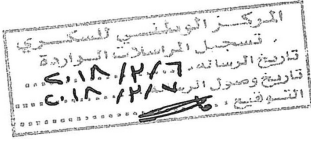 المركز الوطني للسكري
تسجيل المراسلات الواردة
تاريخ الرسالة: ٢٠١٨/٢/٦
تاريخ وصول الرسالة ٢٠١٨/٢/٧
التوقيع